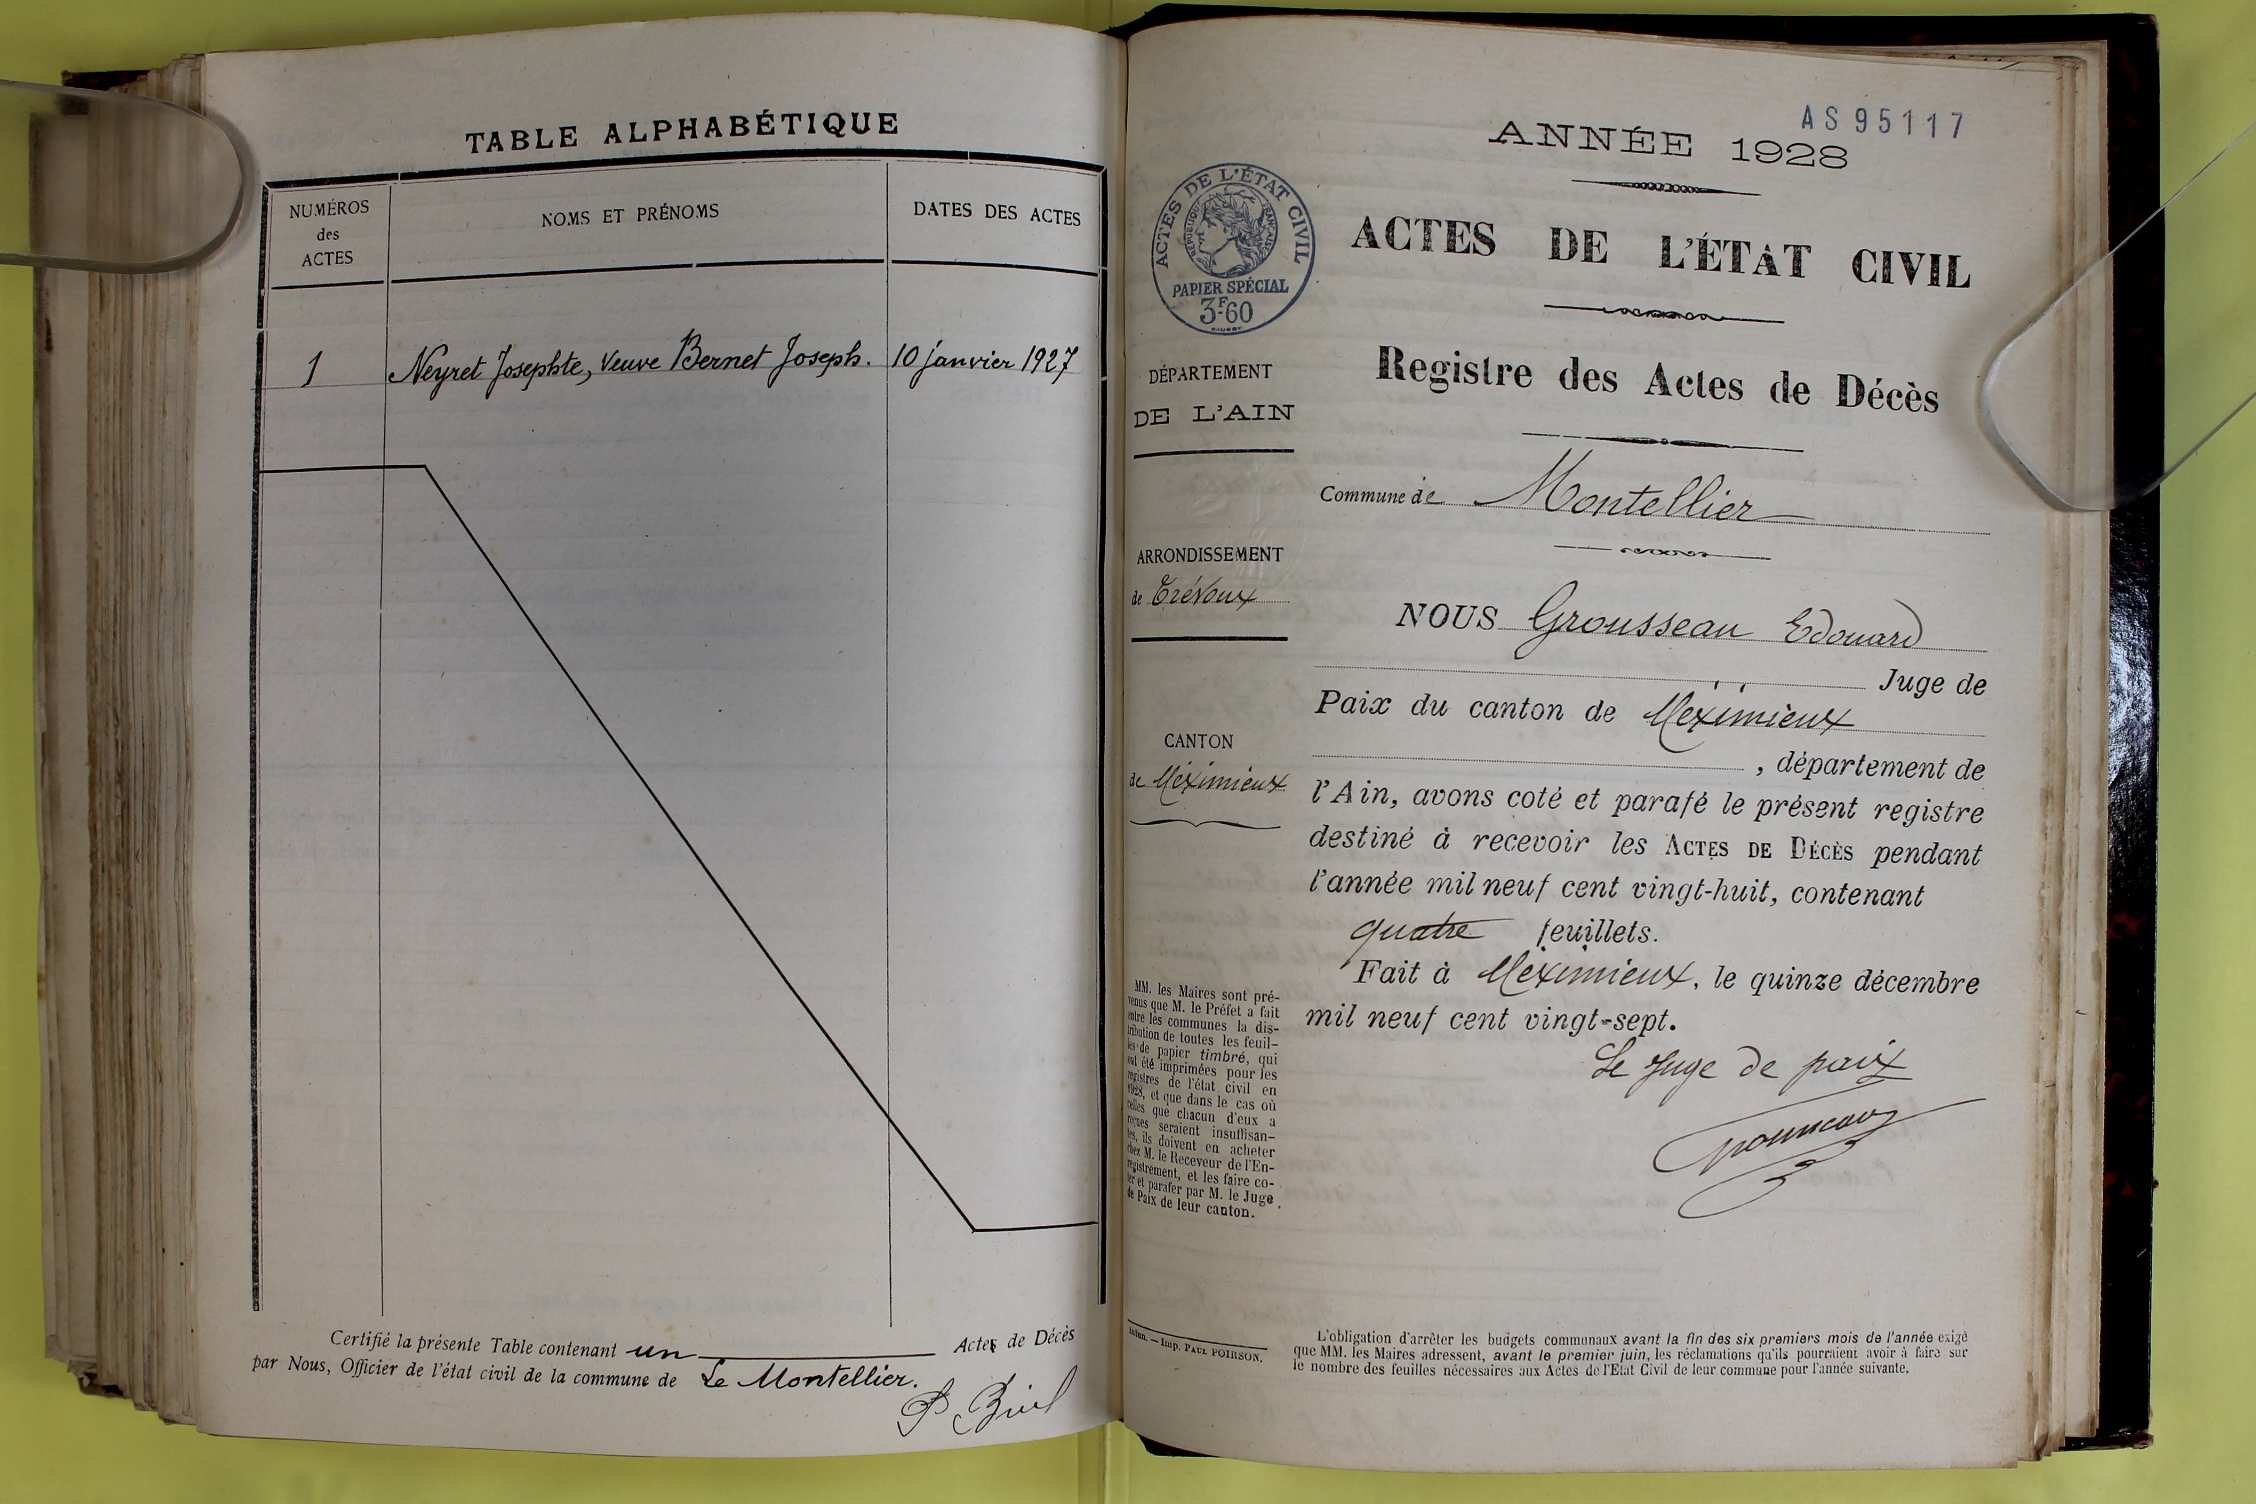 TABLE ALPHABÉTIQUE
NUMÉROS
des
ACTES
NOMS ET PRÉNOMS
DATES DES ACTES
1 Neyret Josephte, veuve Bernet Joseph. 10 janvier 1927
Certifié la présente Table contenant un Actes de Décès
par Nous, Officier de l'état civil de la commune de Le Montellier.
AS 95117
ANNÉE 1928
ACTES DE L'ÉTAT CIVIL
RÉPUBLIQUE FRANÇAISE
PAPIER SPÉCIAL
3F.60
ACTES DE L'ÉTAT CIVIL
Registre des Actes de Décès
DÉPARTEMENT
DE L'AIN
Commune de Montellier
ARRONDISSEMENT
de Trévoux
CANTON
de Méximieux
NOUS Grousseau Edouard
Juge de
Paix du canton de Méximieux
, département de
l'Ain, avons coté et parafé le présent registre
destiné à recevoir les ACTES DE DÉCÈS pendant
l'année mil neuf cent vingt-huit, contenant
quatre feuillets.
Fait à Méximieux, le quinze décembre
mil neuf cent vingt-sept.
Le Juge de paix
MM. les Maires sont pré-
venus que M. le Préfet a fait
entre les communes la dis-
tribution de toutes les feuil-
les de papier timbré, qui
ont été imprimées pour les
registres de l'état civil en
1928, et que dans le cas où
celles que chacun d'eux a
reçues seraient insuffisan-
tes, ils doivent en acheter
chez M. le Receveur de l'En-
registrement, et les faire co-
ter et parafer par M. le Juge
de Paix de leur canton.
— Imp. PAUL POIRSON.
L'obligation d'arrêter les budgets communaux avant la fin des six premiers mois de l'année exige
que MM. les Maires adressent, avant le premier juin, les réclamations qu'ils pourraient avoir à faire sur
le nombre des feuilles nécessaires aux Actes de l'Etat Civil de leur commune pour l'année suivante.